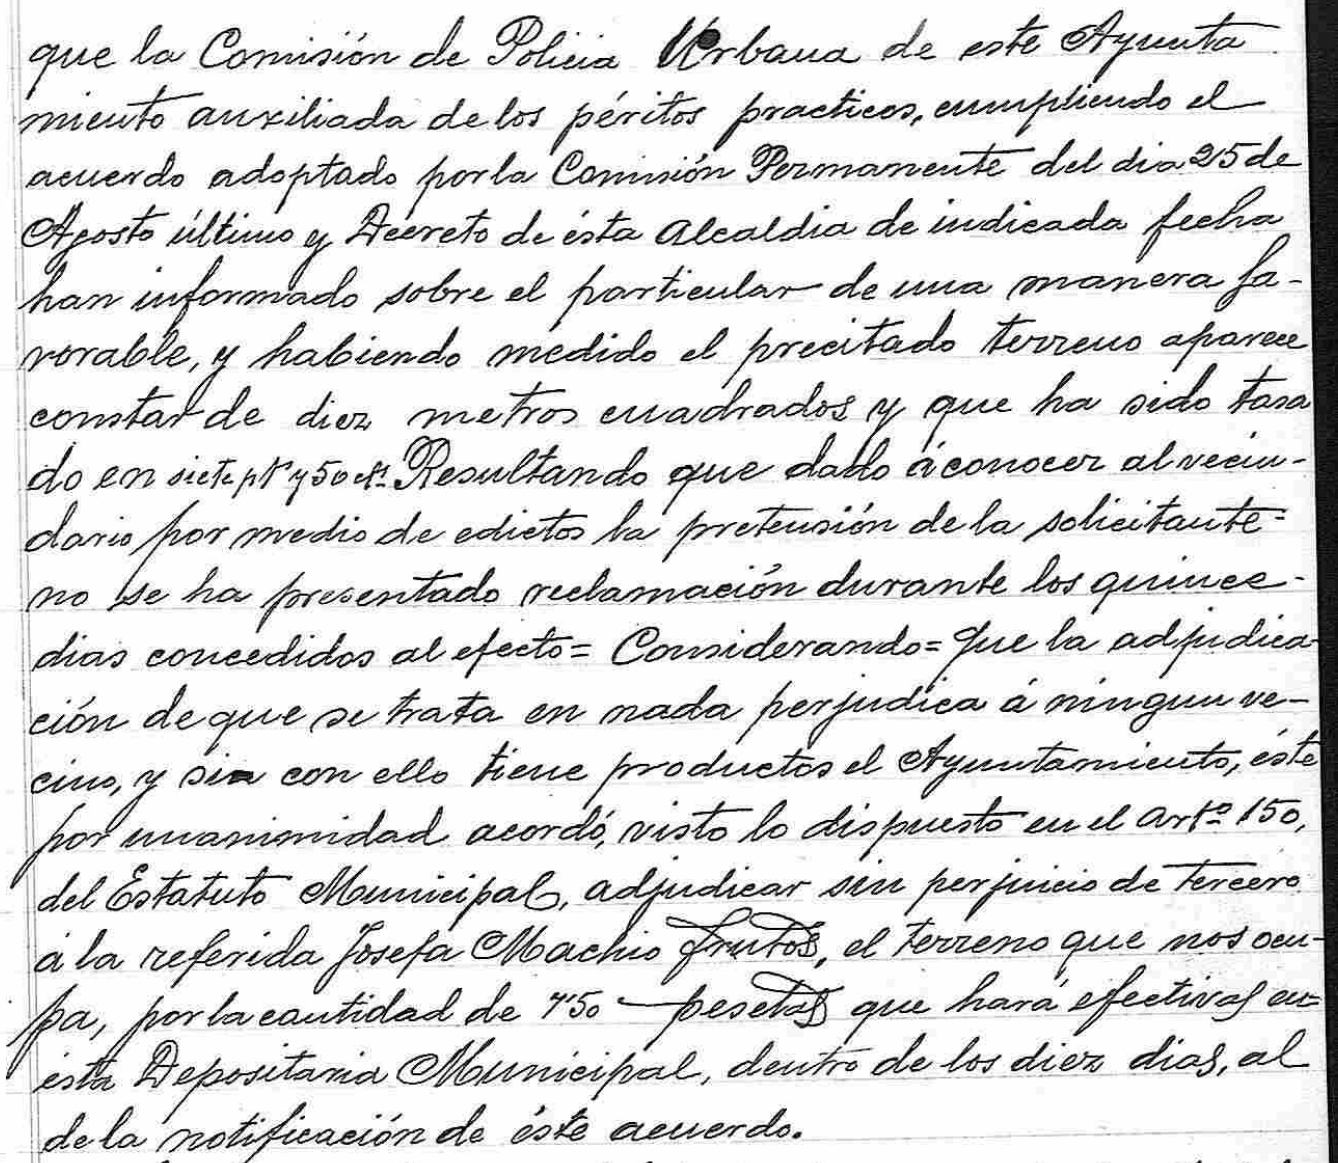 que la Comisión de Policia Urbana de este Ayunta
miento auxiliada de los péritos practicos, cumpliendo el
acuerdo adoptado por la Comisión Permanente del dia 25 de
Agosto último y Decreto de ésta Alcaldia de indicada fecha
han informado sobre el particular de una manera fa-
vorable, y habiendo medido el precitado terreno aparece
constar de diez metros cuadrados y que ha sido tasa
do en siete pts y 50 cts. Resultando que dado á conocer al vecin-
dario por medio de edictos la pretensión de la solicitante=
no se ha presentado reclamación durante los quince-
dias concedidos al efecto= Considerando= Que la adjudica-
ción de que se trata en nada perjudica á ningun ve-
cino, y sin con ello tiene productos el Ayuntamiento, éste
por unanimidad acordó, visto lo dispuesto en el artº 150,
del Estatuto Municipal, adjudicar sin perjuicio de tercero
á la referida Josefa Machio Frutos, el terreno que nos ocu-
pa, por la cantidad de 7'50 — pesetas que hará efectivas en=
esta Depositaria Municipal, dentro de los diez dias, al
de la notificación de éste acuerdo.